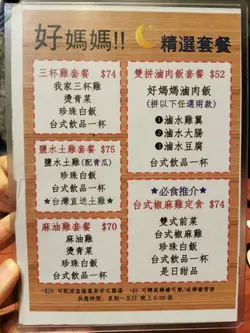 好媽媽!!
精選套餐
三杯雞套餐 $74
我家三杯雞
燙青菜
珍珠白飯
台式飲品一杯
鹽水土雞套餐 $75
鹽水土雞(配青瓜)
珍珠白飯
台式飲品一杯
★台灣直送土雞★
麻油雞套餐 $70
麻油雞
燙青菜
珍珠白飯
台式飲品一杯
雙拼滷肉飯套餐 $52
好媽媽滷肉飯
(拼以下任選兩款)
❶滷雞翼
❷滷大腸
❸滷豆腐
台式飲品一杯
★必食推介★
台式椒麻雞定食 $74
雙式前菜
台式椒麻雞
珍珠白飯
台式飲品一杯
是日甜品
供應時間: 星期一至日 晚上6:00後